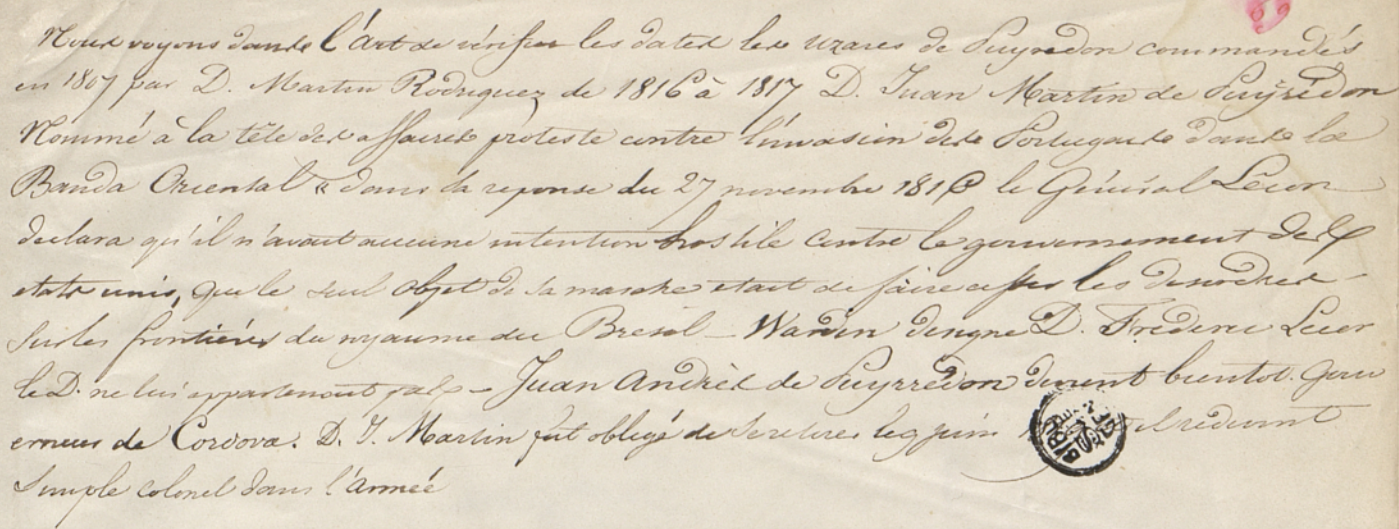 Nous voyons dans l'art de vérifier les dates les uzares de Puyredon commandés
en 1807 par D. Martin Rodriguez de 1816 à 1817 D. Juan Martin de Puÿredon
Nommé à la tête des affaires proteste contre l'invasion des Portugais dans la
Banda Oriental « dans sa reponse du 27 novembre 1816 le Général Lécor
declara qu'il n'avait aucune intention hostile contre le gouvernement des
etats unis, que le seul objet de sa marche etait de faire cesser les desordres
sur les frontières du royaume du Bresil – Warden D. Frederic Lecor
le D. ne lui appartenait pas – Juan Andrès de Puyrredon devient bientot. Gouv
erneur de Cordova. D. J. Martin fut obligé de se retirer le 9 juin il redevint
simple colonel dans l'armée